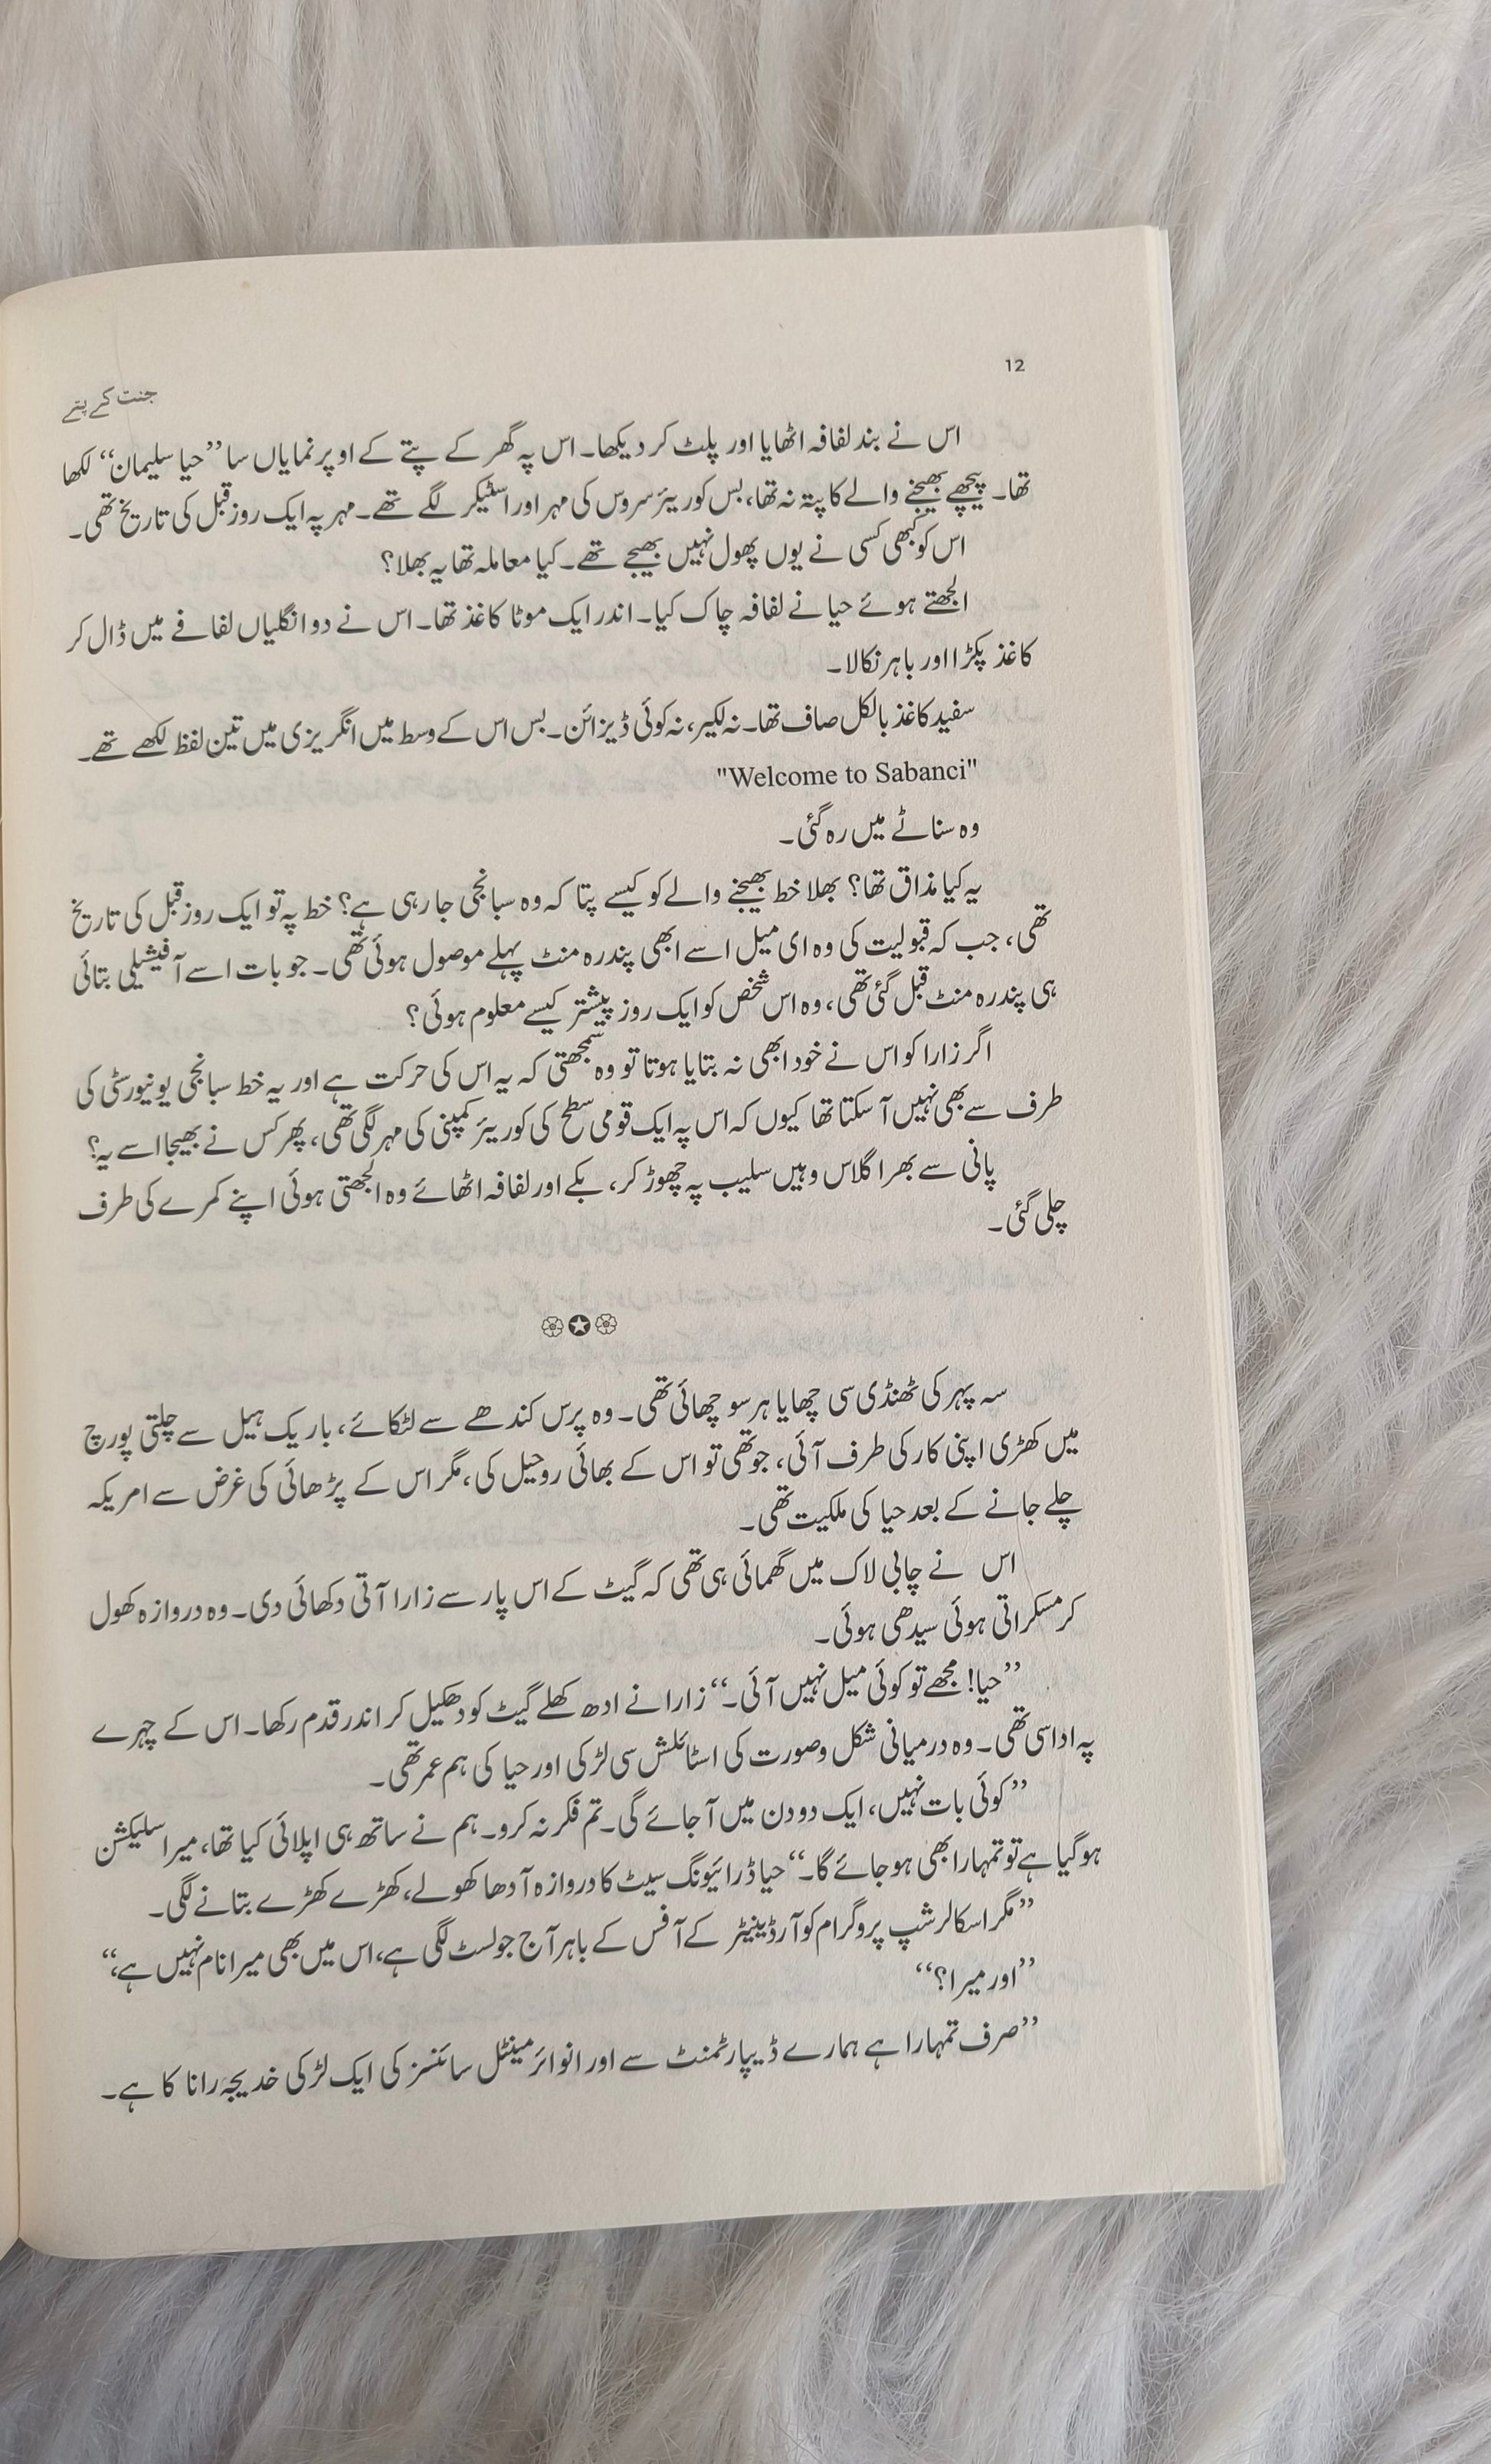 12
جنت کے پتے
اس نے بند لفافہ اٹھایا اور پلٹ کر دیکھا۔ اس پہ گھر کے پتے کے اوپر نمایاں سا ’’حیا سلیمان‘‘ لکھا
تھا۔ پیچھے بھیجنے والے کا پتہ نہ تھا، بس کوریئر سروس کی مہر اور اسٹیکر لگے تھے۔ مہر پہ ایک روز قبل کی تاریخ تھی۔
اس کو کبھی کسی نے یوں پھول نہیں بھیجے تھے۔ کیا معاملہ تھا یہ بھلا؟
الجھتے ہوئے حیا نے لفافہ چاک کیا۔ اندر ایک موٹا کاغذ تھا۔ اس نے دو انگلیاں لفافے میں ڈال کر
کاغذ پکڑا اور باہر نکالا۔
سفید کاغذ بالکل صاف تھا۔ نہ لکیر، نہ کوئی ڈیزائن۔ بس اس کے وسط میں انگریزی میں تین لفظ لکھے تھے۔
"Welcome to Sabanci"
وہ سناٹے میں رہ گئی۔
یہ کیا مذاق تھا؟ بھلا خط بھیجنے والے کو کیسے پتا کہ وہ سبانجی جا رہی ہے؟ خط پہ تو ایک روز قبل کی تاریخ
تھی، جب کہ قبولیت کی وہ ای میل اسے ابھی پندرہ منٹ پہلے موصول ہوئی تھی۔ جو بات اسے آفیشیلی بتائی
ہی پندرہ منٹ قبل گئی تھی، وہ اس شخص کو ایک روز پیشتر کیسے معلوم ہوئی؟
اگر زارا کو اس نے خود ابھی نہ بتایا ہوتا تو وہ سمجھتی کہ یہ اس کی حرکت ہے اور یہ خط سبانجی یونیورسٹی کی
طرف سے بھی نہیں آ سکتا تھا کیوں کہ اس پہ ایک قومی سطح کی کوریئر کمپنی کی مہر لگی تھی، پھر کس نے بھیجا اسے یہ؟
پانی سے بھرا گلاس وہیں سلیب پہ چھوڑ کر، بکے اور لفافہ اٹھائے وہ الجھتی ہوئی اپنے کمرے کی طرف
چلی گئی۔
سہ پہر کی ٹھنڈی سی چھایا ہر سو چھائی تھی۔ وہ پرس کندھے سے لٹکائے، باریک ہیل سے چلتی پورچ
میں کھڑی اپنی کار کی طرف آئی، جو تھی تو اس کے بھائی روحیل کی، مگر اس کے پڑھائی کی غرض سے امریکہ
چلے جانے کے بعد حیا کی ملکیت تھی۔
اس نے چابی لاک میں گھمائی ہی تھی کہ گیٹ کے اس پار سے زارا آتی دکھائی دی۔ وہ دروازہ کھول
کر مسکراتی ہوئی سیدھی ہوئی۔
’’حیا! مجھے تو کوئی میل نہیں آئی۔‘‘ زارا نے ادھ کھلے گیٹ کو دھکیل کر اندر قدم رکھا۔ اس کے چہرے
پہ اداسی تھی۔ وہ درمیانی شکل و صورت کی اسٹائلش سی لڑکی اور حیا کی ہم عمر تھی۔
’’کوئی بات نہیں، ایک دو دن میں آ جائے گی۔ تم فکر نہ کرو۔ ہم نے ساتھ ہی اپلائی کیا تھا، میرا سلیکشن
ہو گیا ہے تو تمہارا بھی ہو جائے گا۔‘‘ حیا ڈرائیونگ سیٹ کا دروازہ آدھا کھولے، کھڑے کھڑے بتانے لگی۔
’’مگر اسکالرشپ پروگرام کوآرڈینیٹر کے آفس کے باہر آج جو لسٹ لگی ہے، اس میں بھی میرا نام نہیں ہے،‘‘
’’اور میرا؟‘‘
’’صرف تمہارا ہے ہمارے ڈیپارٹمنٹ سے اور انوائرمینٹل سائنسز کی ایک لڑکی خدیجہ رانا کا ہے۔